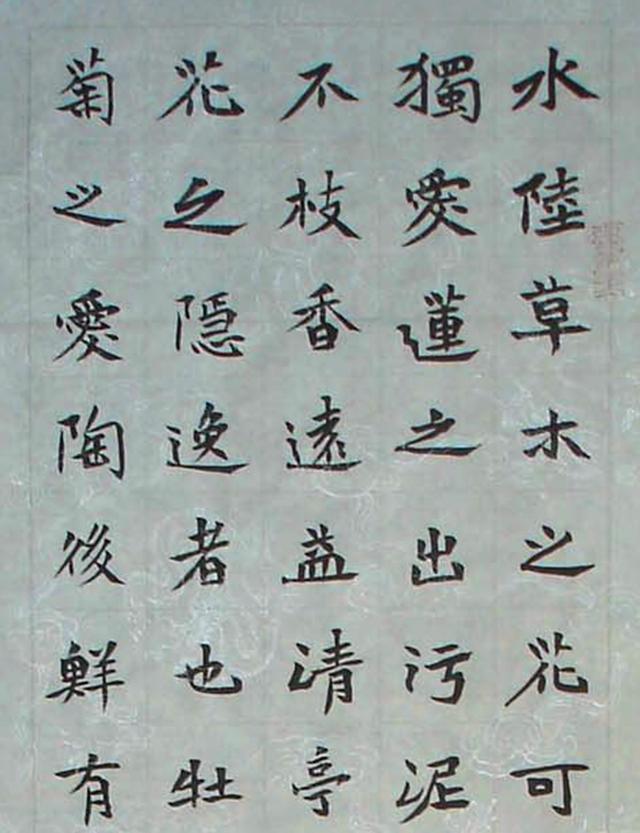 水陸草木之花可
獨愛蓮之出污泥
不枝香遠益清亭
花之隠逸者也牡
菊之愛陶後鮮有